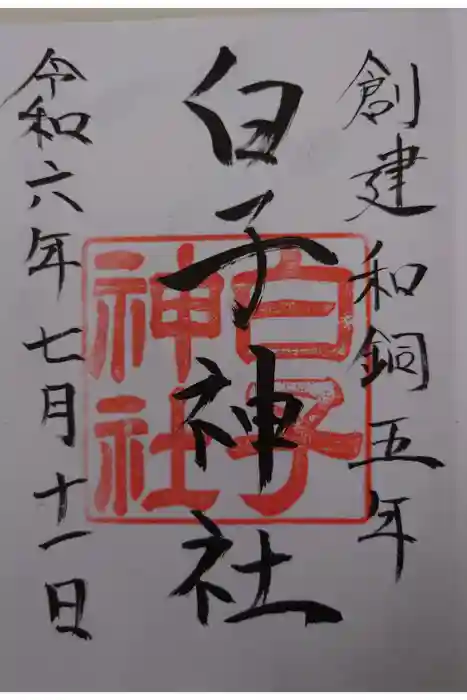 創建 和銅五年
白子神社
白子
神社
令和六年七月十一日